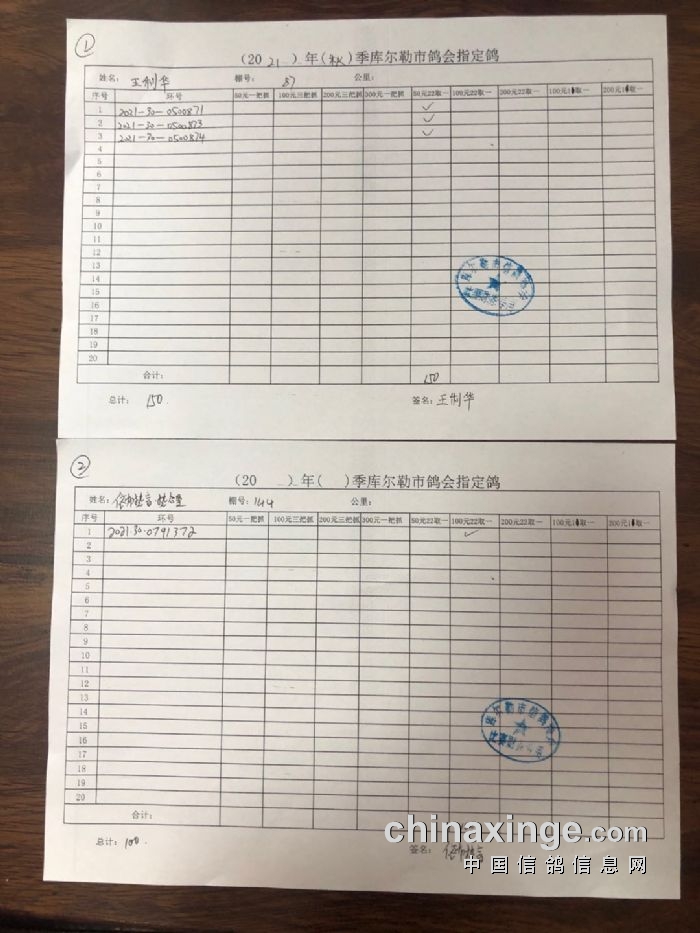 1
(20 21 ) 年 (秋) 季库尔勒市鸽会指定鸽
姓名: 王制华 棚号: 37 公里:
序号 环号 50元一把抓 100元三把抓 200元三把抓 300元一把抓 50元22取一 100元22取一 200元22取一 100元1取一 200元1取一
1 2021-30-0500871 ✓
2 2021-30-0500873 ✓
3 2021-30-0500874 ✓
4
5
6
7
8
9
10
11
12
13
14
15
16
17
18
19
20
合计: 150
总计: 150. 签名: 王制华
2
(20 ) 年 ( ) 季库尔勒市鸽会指定鸽
姓名: 棚号: 144 公里:
序号 环号 50元一把抓 100元三把抓 200元三把抓 300元一把抓 50元22取一 100元22取一 200元22取一 100元1取一 200元1取一
1 2021-30-0791372 ✓
2
3
4
5
6
7
8
9
10
11
12
13
14
15
16
17
18
19
20
合计:
总计: 100. 签名:
库尔勒市信鸽协会
chinaxinge.com
中国信鸽信息网